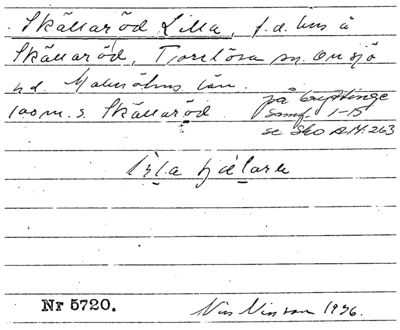 Skällaröd Lilla, f.d. hus å
Skällaröd, Torrlösa sn. Onsjö
hd. Malmöhus län.
100 m. s. Skällaröd
på bryttinge
samf. 1-15
se Sko A.M. 263
Nr 5720.
Nils Nilsson 1936.